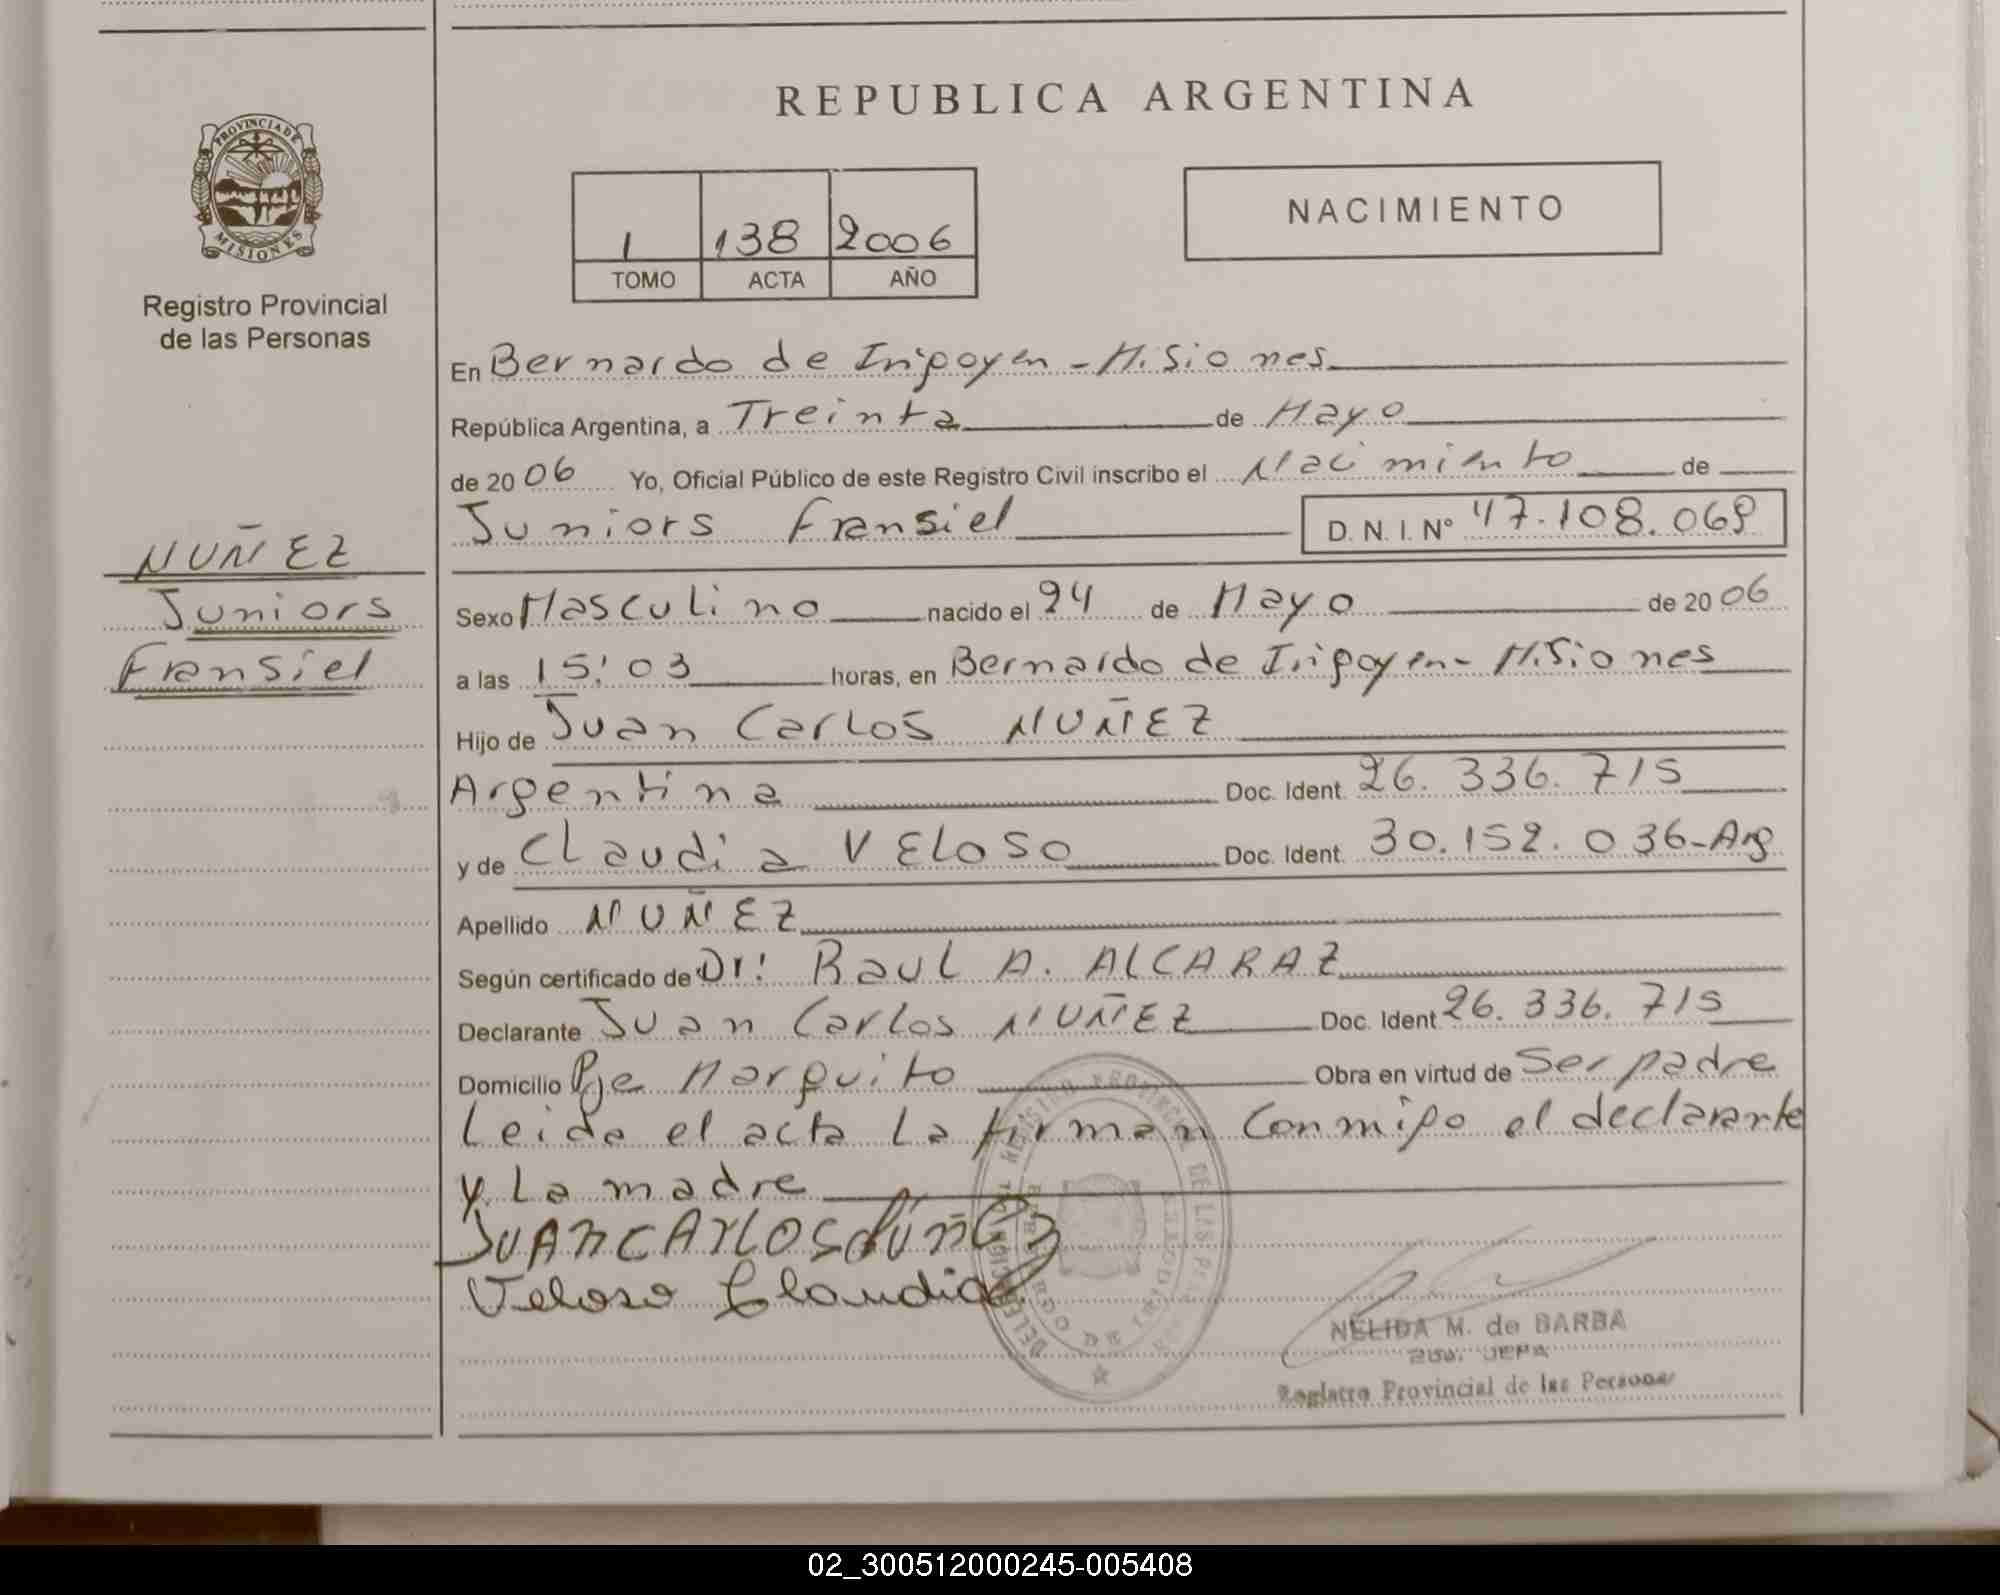 REPUBLICA ARGENTINA
PROVINCIA DE
MISIONES
Registro Provincial
de las Personas
1 138 2006
TOMO ACTA AÑO
NACIMIENTO
NUÑEZ
Juniors
Fransiel
En Bernardo de Irigoyen - Misiones
República Argentina, a Treinta de Mayo
de 2006 Yo, Oficial Público de este Registro Civil inscribo el Nacimiento de
Juniors Fransiel D. N. I. Nº 47.108.069
Sexo Masculino nacido el 24 de Mayo de 2006
a las 15:03 horas, en Bernardo de Irigoyen - Misiones
Hijo de Juan Carlos NUÑEZ
Argentina Doc. Ident. 26.336.715
y de Claudia VELOSO Doc. Ident. 30.152.036-Arg
Apellido NUÑEZ
Según certificado de Dr: Raul A. ALCARAZ
Declarante Juan Carlos NUÑEZ Doc. Ident. 26.336.715
Domicilio Pje Marquito Obra en virtud de Ser padre
Leida el acta la firman conmigo el declarante
y la madre
JUAN CARLOS NÚÑEZ
Veloso Claudia
NELIDA M. de BARBA
Registro Provincial de las Personas
02_300512000245-005408